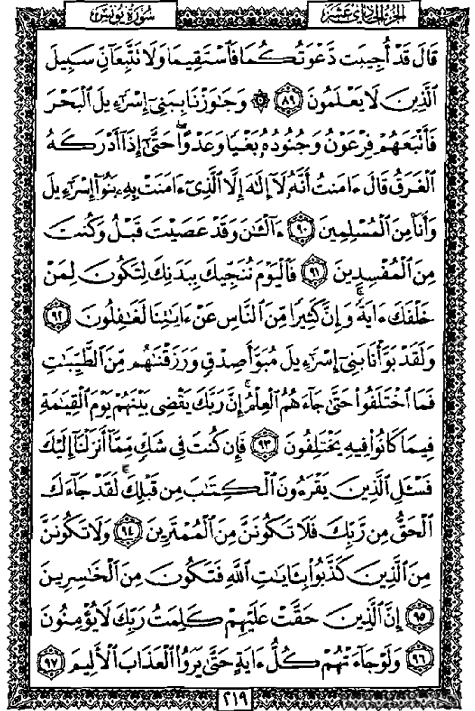 الجزء الحادي عشر
سورة يونس
قَالَ قَدْ أُجِيبَت دَّعْوَتُكُمَا فَاسْتَقِيمَا وَلَا تَتَّبِعَانِّ سَبِيلَ
الَّذِينَ لَا يَعْلَمُونَ ۝٨٩ ۞ وَجَاوَزْنَا بِبَنِي إِسْرَاءِيلَ الْبَحْرَ
فَأَتْبَعَهُمْ فِرْعَوْنُ وَجُنُودُهُ بَغْيًا وَعَدْوًا ۖ حَتَّىٰ إِذَا أَدْرَكَهُ
الْغَرَقُ قَالَ ءَامَنتُ أَنَّهُ لَا إِلَٰهَ إِلَّا الَّذِي ءَامَنَتْ بِهِ بَنُوا إِسْرَاءِيلَ
وَأَنَا مِنَ الْمُسْلِمِينَ ۝٩٠ ءَآلْـَٰنَ وَقَدْ عَصَيْتَ قَبْلُ وَكُنتَ
مِنَ الْمُفْسِدِينَ ۝٩١ فَالْيَوْمَ نُنَجِّيكَ بِبَدَنِكَ لِتَكُونَ لِمَنْ
خَلْفَكَ ءَايَةً ۚ وَإِنَّ كَثِيرًا مِّنَ النَّاسِ عَنْ ءَايَاتِنَا لَغَافِلُونَ ۝٩٢
وَلَقَدْ بَوَّأْنَا بَنِي إِسْرَاءِيلَ مُبَوَّأَ صِدْقٍ وَرَزَقْنَاهُم مِّنَ الطَّيِّبَاتِ
فَمَا اخْتَلَفُوا حَتَّىٰ جَاءَهُمُ الْعِلْمُ ۚ إِنَّ رَبَّكَ يَقْضِي بَيْنَهُمْ يَوْمَ الْقِيَامَةِ
فِيمَا كَانُوا فِيهِ يَخْتَلِفُونَ ۝٩٣ فَإِن كُنتَ فِي شَكٍّ مِّمَّا أَنزَلْنَا إِلَيْكَ
فَسْـَٔلِ الَّذِينَ يَقْرَءُونَ الْكِتَابَ مِن قَبْلِكَ ۚ لَقَدْ جَاءَكَ
الْحَقُّ مِن رَّبِّكَ فَلَا تَكُونَنَّ مِنَ الْمُمْتَرِينَ ۝٩٤ وَلَا تَكُونَنَّ
مِنَ الَّذِينَ كَذَّبُوا بِـَٔايَاتِ اللَّهِ فَتَكُونَ مِنَ الْخَاسِرِينَ
۝٩٥ إِنَّ الَّذِينَ حَقَّتْ عَلَيْهِمْ كَلِمَتُ رَبِّكَ لَا يُؤْمِنُونَ
۝٩٦ وَلَوْ جَاءَتْهُمْ كُلُّ ءَايَةٍ حَتَّىٰ يَرَوُا الْعَذَابَ الْأَلِيمَ ۝٩٧
٢١٩